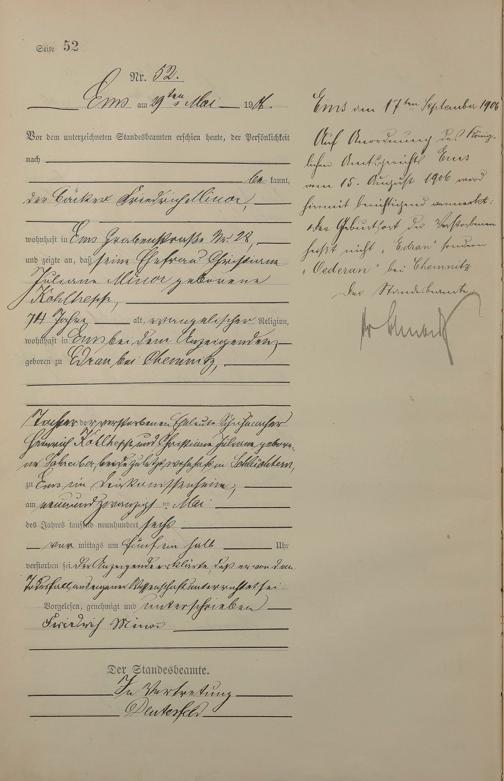 Seite 52
Nr. 52.
Ems am 29ten Mai 1906.
Vor dem unterzeichneten Standesbeamten erschien heute, der Persönlichkeit
nach
be kannt,
der Bäcker Friedrich Minor,
wohnhaft in Ems Grabenstraße Nr 28,
und zeigte an, daß seine Ehefrau Christiane
Juliane Minor geborene
74 Jahre alt, evangelischer Religion,
wohnhaft in Ems bei dem Anzeigenden,
geboren zu Edran bei Chemnitz,
Tochter der verstorbenen Eheleute Schuhmacher
Heinrich und Christiane Juliane gebore-
ne zuletzt wohnhaft in
zu Ems im
am neunundzwanzigsten Mai
des Jahres tausend neunhundert sechs
vor mittags um fünf einhalb Uhr
verstorben sei. Der Anzeigende erklärte, daß er von dem
Todesfall aus eigener Wissenschaft unterrichtet sei
Vorgelesen, genehmigt und unterschrieben
Friedrich Minor
Der Standesbeamte.
In Vertretung
Ems den 17ten September 1906
Auf Anordnung des König-
lichen Amtsgerichts Ems
vom 15. August 1906 wird
hiermit berichtigend vermerkt:
der Geburtsort der Verstorbenen
heißt nicht „Edran" sondern
„Oederan" bei Chemnitz
Der Standesbeamte